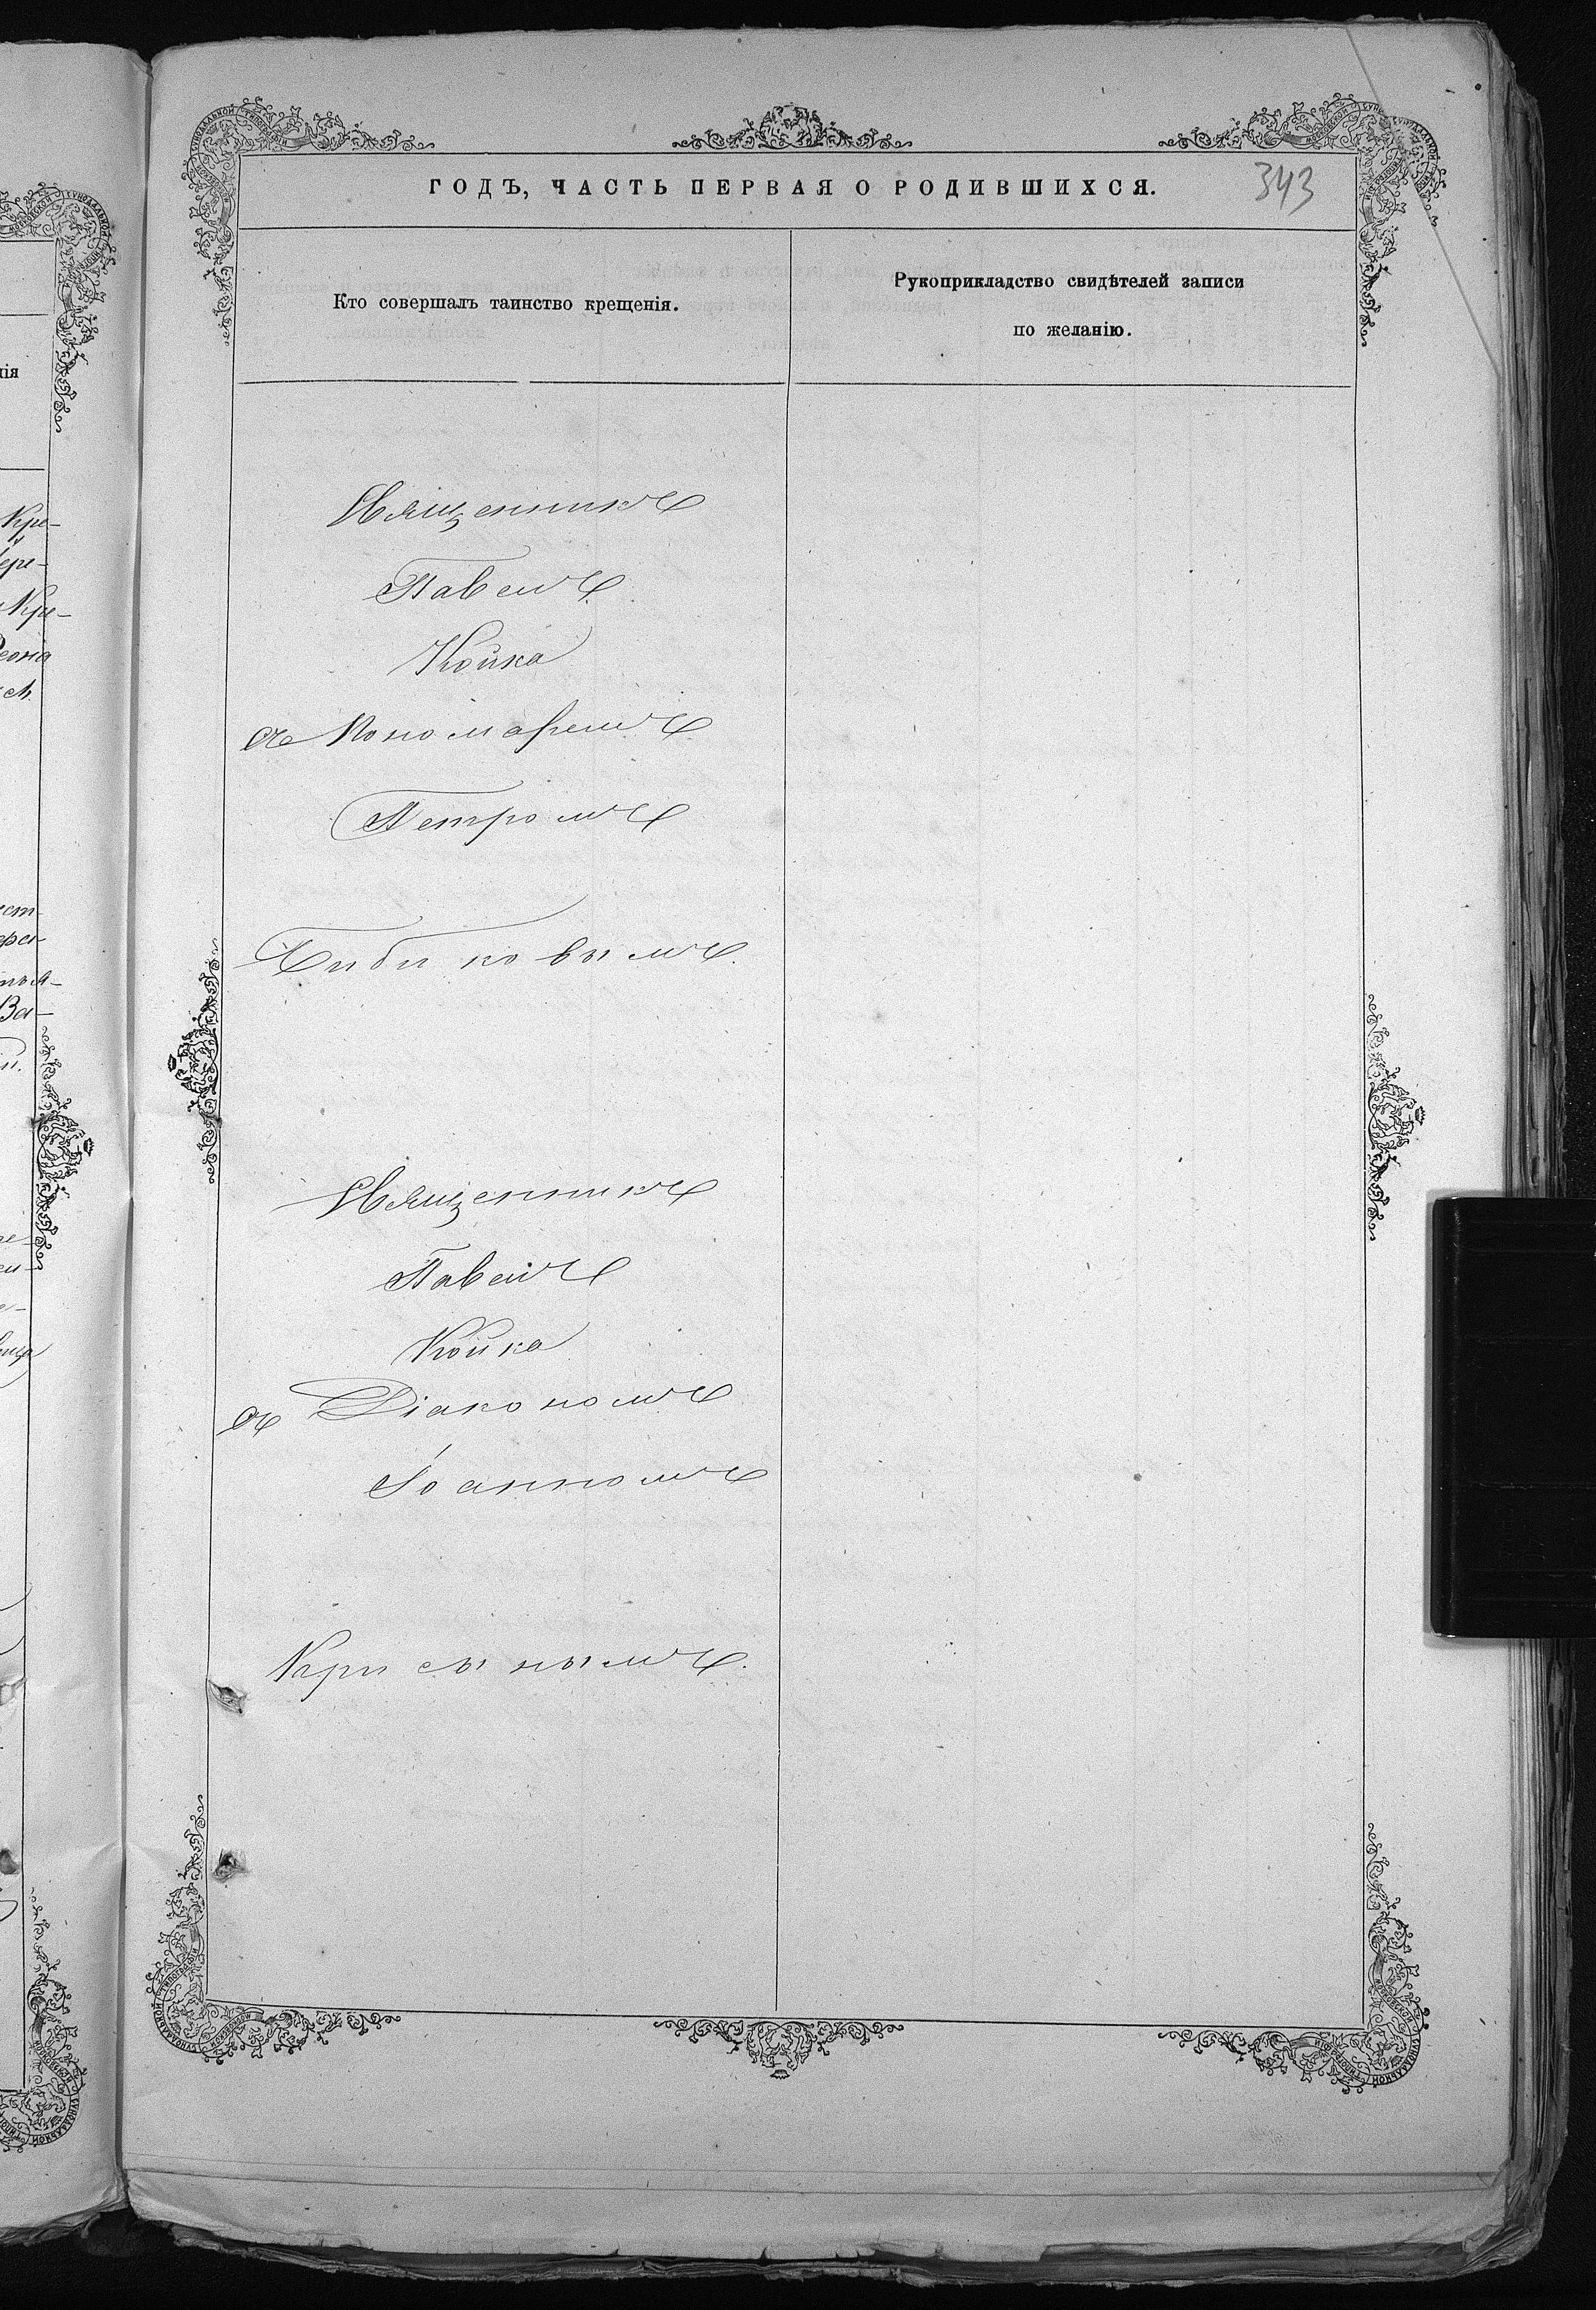 ГОДЪ, ЧАСТЬ ПЕРВАЯ О РОДИВШИХСЯ.
343
Кто совершалъ таинство крещенія.
Рукоприкладство свидѣтелей записи
по желанію.
Священникъ
Павелъ
Койка
съ Пономаремъ
Петромъ
Бибиковымъ.
Священникъ
Павелъ
Койка
съ Діакономъ
Іоанномъ